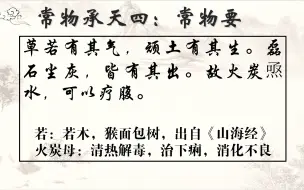 常物承天四：常物要
草若有其气，顽土有其生。磊
石尘灰，皆有其出。故火炭
水，可以疗腹。
若：若木，猴面包树，出自《山海经》
火炭母：清热解毒，治下痢，消化不良